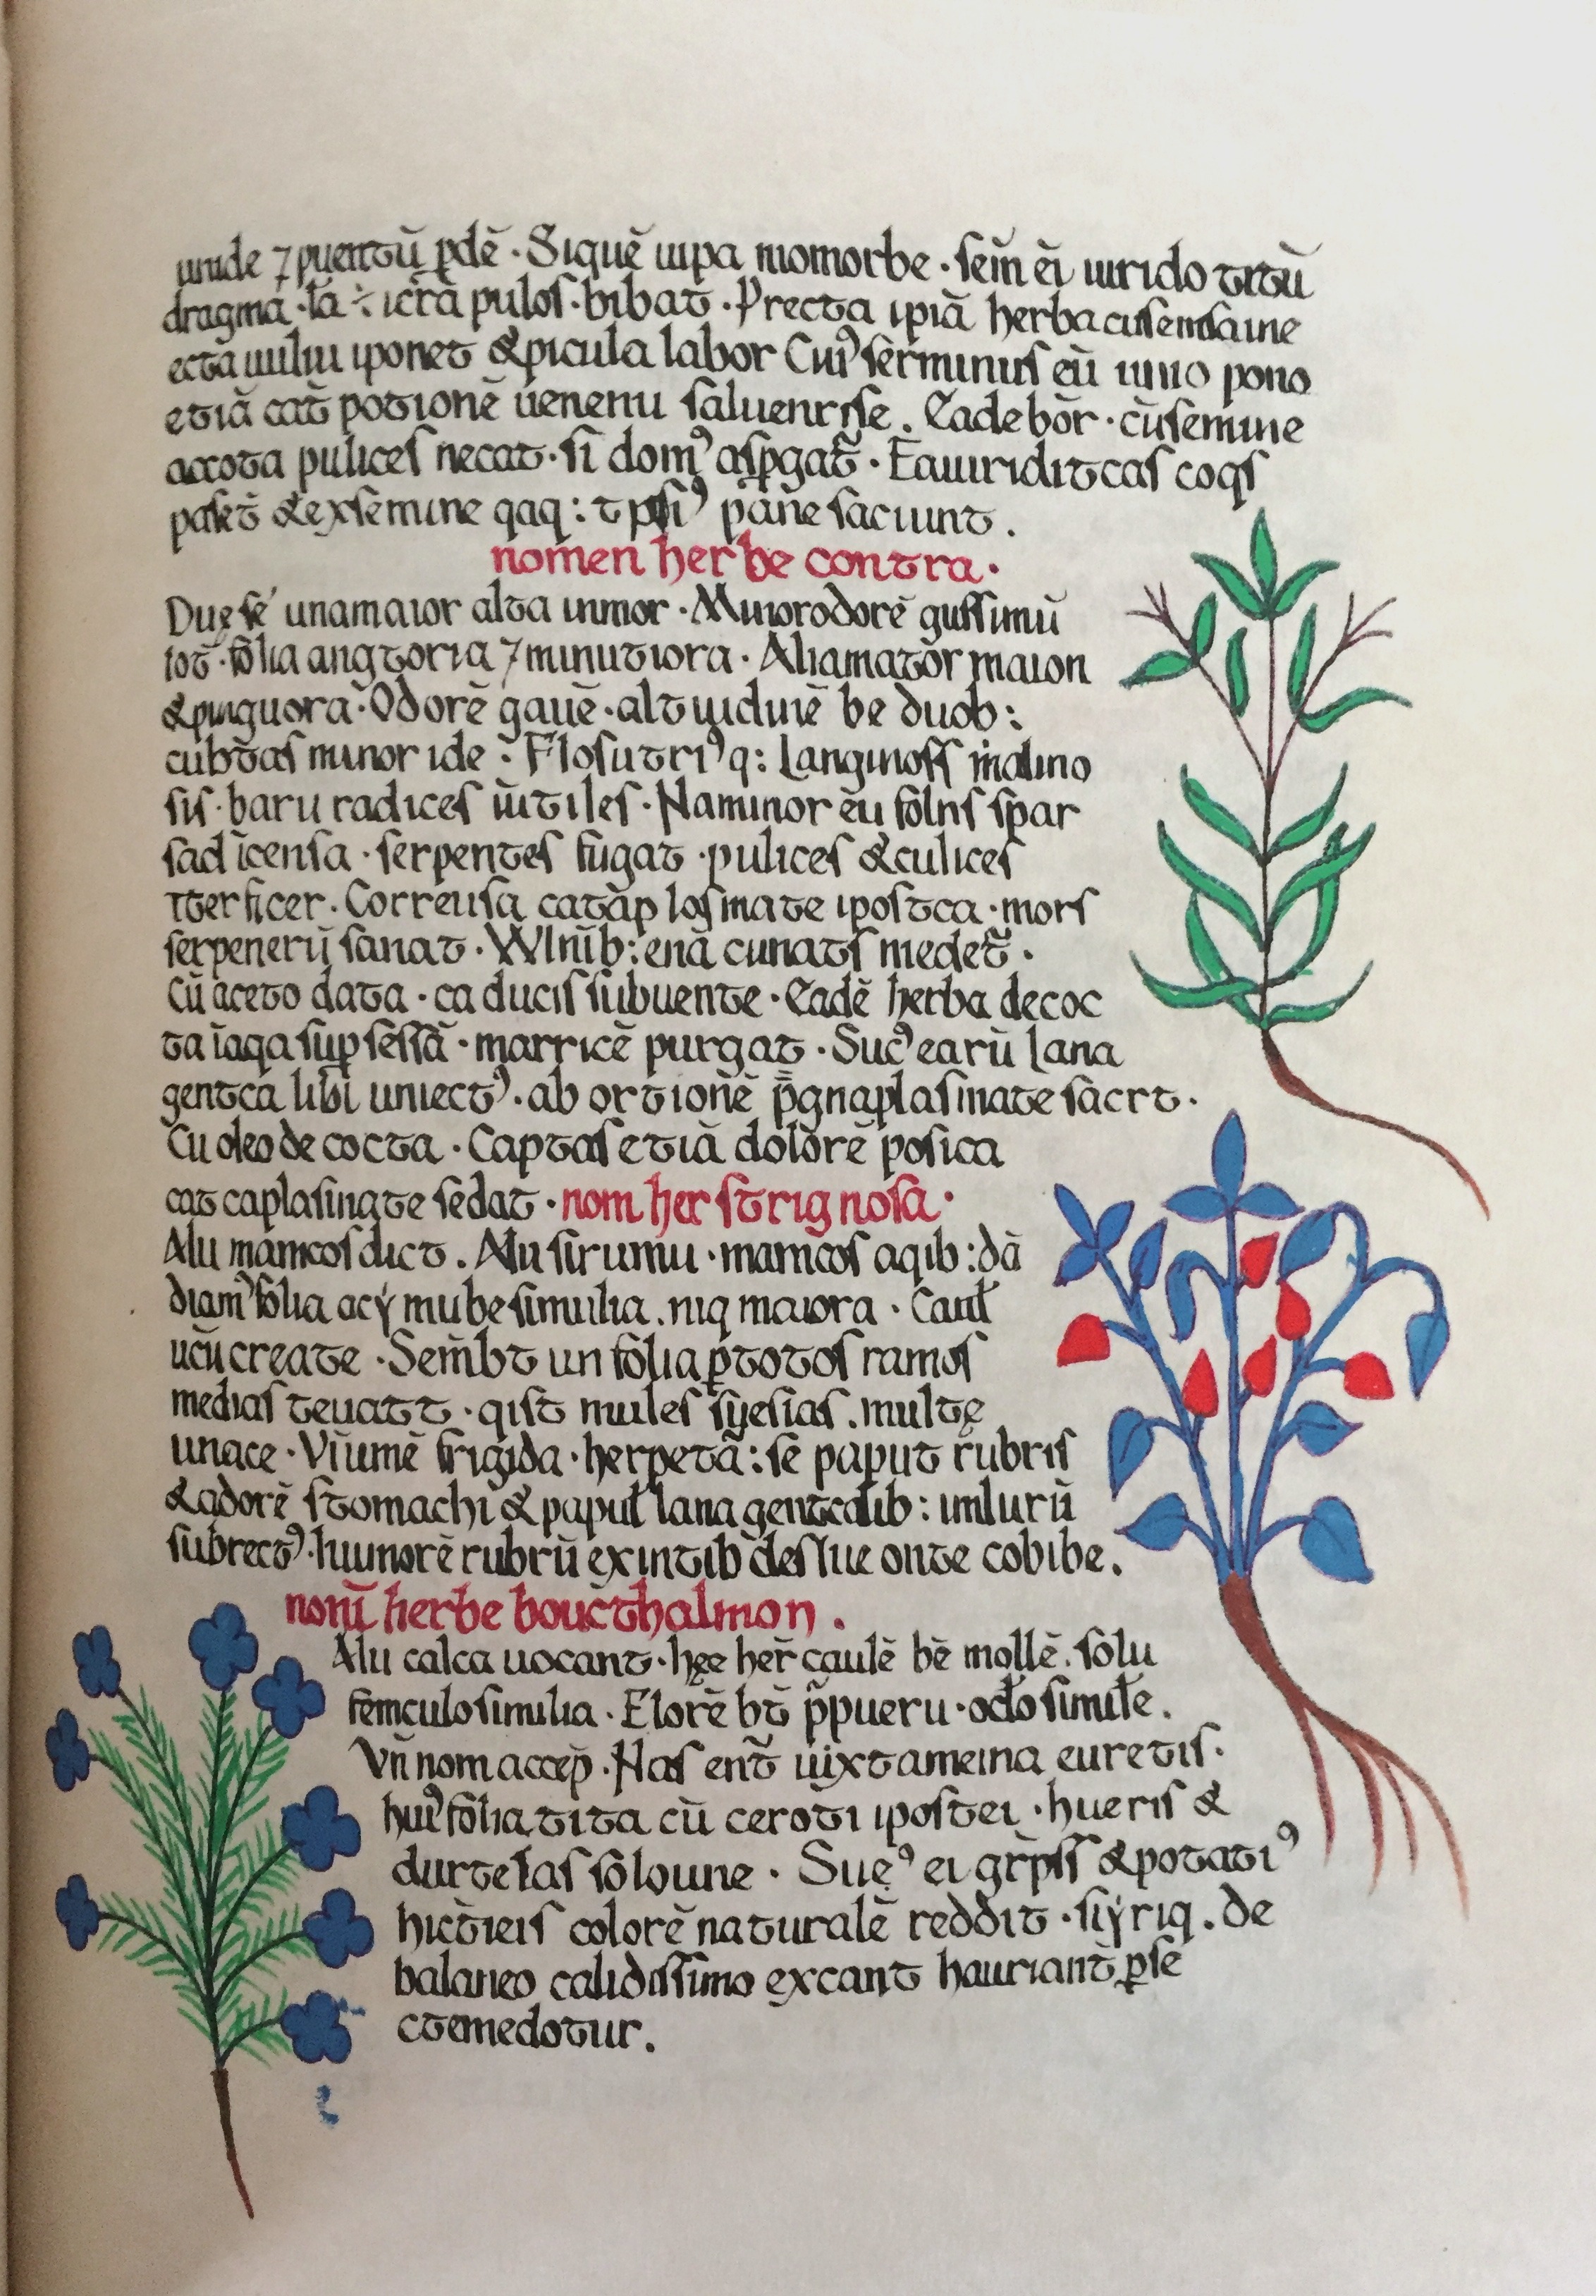 uiride ⁊ puentū ꝑdē · Siquē uipa momorbe · sem̄ ei uirido tritū
dragma · ta ÷ icrā pulos · bibat̄ · Precta ipiā herba cusemsaine
ecta uului iponet & picula labor Cui᾽ ser̄minus eū uino pono
etiā cat̄ potionē uenenu saluenrise. Eadebōr · cū semine
accota pulices necat · si dom᾽ aspgat̄ · Eauuriditcas coqs
paset̄ & exsemine qaq: t psi᾽ pāne faciunt.
nomen herbe contra.
Duę sē unamaior alta inmor · Minorodorē gussimū
iot̄ · folia angtoria ⁊ minutiora · Aliamatōr maion
& pinguora · Odorē gauē · alt uiduiē be duob:
cubtas minor ide · Flosutri᾽q: Langinoss malino
sis · baru radices iūtiles · Naminor eū folus spar
sad icensa · serpentes fugat · pulices & culices
Tterficer. Correusa catāplosmate ipostca · mors
serpenerū sanat · Wlnib: enā cunats medet̄.
Cū aceto data · caducis subuente · Eadē herba decoc
ta iaqa sup sessā · marricē purgat · Suc᾽ earū lana
gentca libi uniect᾽ · abortionē p̄gnaplasmate sacrt.
Cu oleo de cocta · Captas etiā dolorē posica
cat caplasingte sedat · nom her strignosa.
Alu mamcos dict. Alu sirumu · mamcos aqib: dā
diam᾽ folia acẏ mube similia. niq maiora · Caul
ucū create · Semb̄t un folia ꝑ totos ramos
medias teuatt · qist mules syesias. multę
unace · Viūmē frigida · herpetā: sē paput rubris
& adorē stomachi & paput lana gentcalib: imlurū
subrect᾽ · huumorē rubrū ex intib deslue onte cobibe.
nom̄ herbe boucthalmon.
Alu calca uocant · hęe her̄ caulē bē mollē. solu
femculo similia · Elorē bt̄ p̄pueru · octo simile.
Vn̄ nom accep̄ · Has ent̄ iuixtameina euretis ·
hui᾽ folia tita cū ceroti ipostei · hueris &
durtetas soloune · Suę᾽ ei grp̄iss & potati᾽
hictieis colorē naturalē reddit · siẏriq. de
balaneo calidissimo excant hauriant̄ ꝑse
ctemedotur.